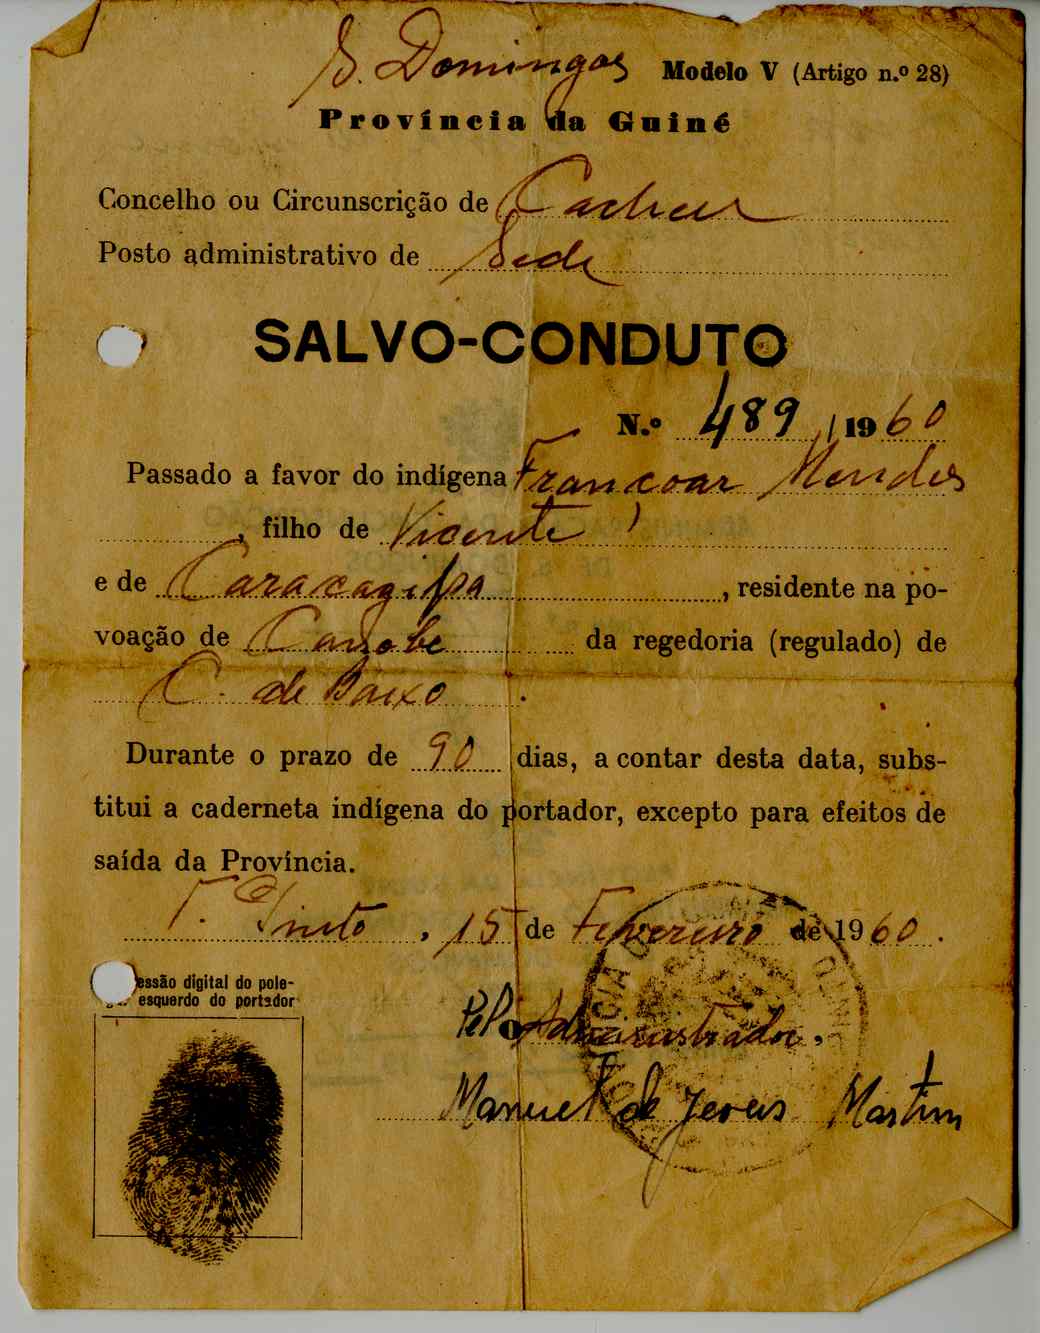 S. Domingos Modelo V (Artigo n.º 28)
Província da Guiné
Concelho ou Circunscrição de Cacheu
Posto administrativo de Sede
SALVO-CONDUTO
N.º 489 / 1960
Passado a favor do indígena Françoar Mendes
, filho de Vicente
e de , residente na po-
voação de Canobe da regedoria (regulado) de
C. de Baixo .
Durante o prazo de 90 dias, a contar desta data, subs-
titui a caderneta indígena do portador, excepto para efeitos de
saída da Província.
T. Pinto , 15 de Fevereiro de 1960.
essão digital do pole-
esquerdo do portador
Pel O Administrador,
Manuel de Jesus Martins